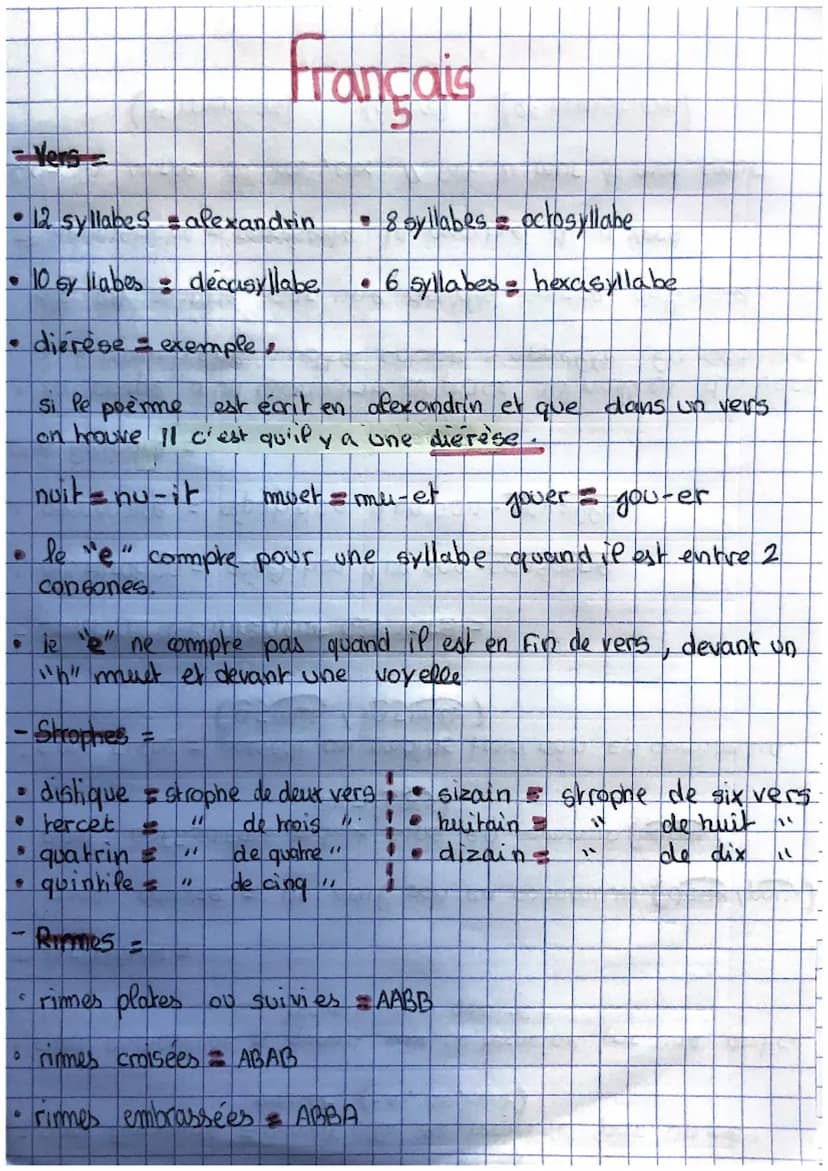 Français
- Vers =
• 12 syllabes = alexandrin • 8 syllabes = octosyllabe
• 10 syllabes = décasyllabe • 6 syllabes = hexasyllabe
• diérèse = exemple :
si le poème est écrit en alexandrin et que dans un vers
on trouve 11 c'est qu'il y a une diérèse.
nuit = nu-it muet = mu-et jouer = jou-er
• le "e" compte pour une syllabe quand il est entre 2
consones.
• le "e" ne compte pas quand il est en fin de vers, devant un
"h" muet et devant une voyelle
- Strophes =
• distique = strophe de deux vers • sizain = strophe de six vers
• tercet = " de trois " • huitain = " de huit "
• quatrin = " de quatre " • dizain = " de dix "
• quintile = " de cinq "
- Rimes =
• rimes plates ou suivies = AABB
• rimes croisées = ABAB
• rimes embrassées = ABBA